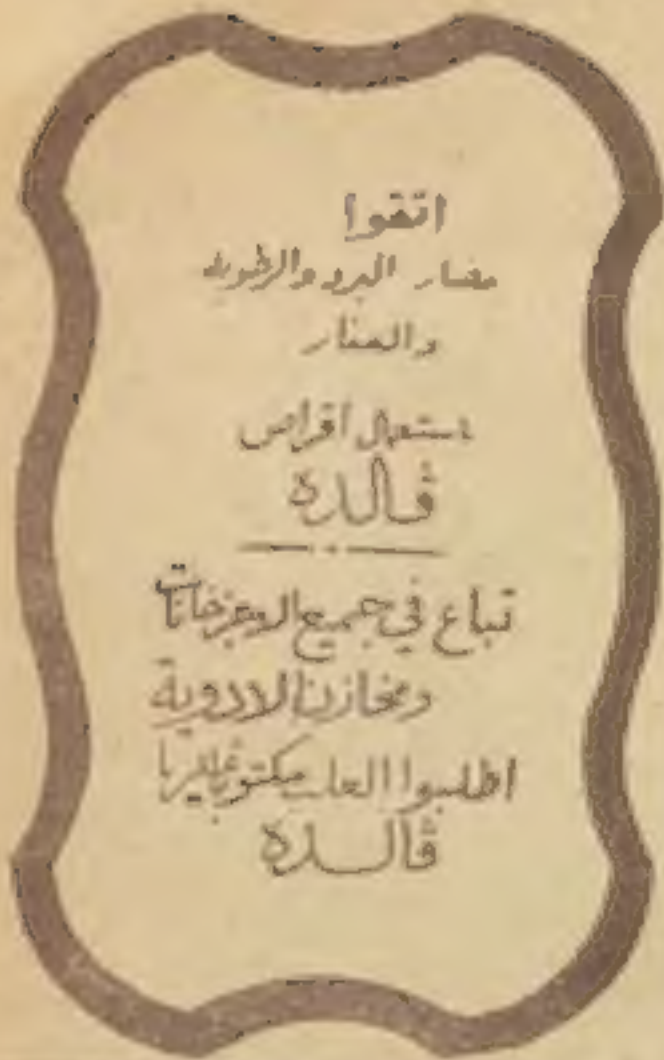 اتقوا
مضار البرد والرطوبه
والغبار
باستعمال اقراص
ڤالدة
تباع في جميع الاجزخانات
ومخازن الادوية
اطلبوا العلب مكتوبا عليها
ڤالدة